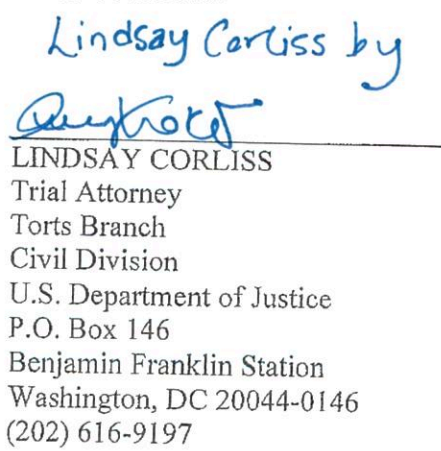 Lindsay Corliss by
LINDSAY CORLISS
Trial Attorney
Torts Branch
Civil Division
U.S. Department of Justice
P.O. Box 146
Benjamin Franklin Station
Washington, DC 20044-0146
(202) 616-9197